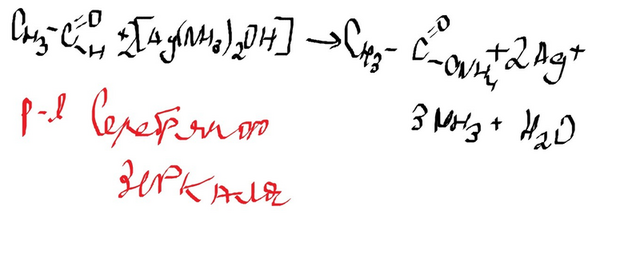 CH₃-C=O-H + 2[Ag(NH₃)₂OH] → CH₃-C=O-ONH₄ + 2Ag +
3NH₃ + H₂O
р-я Серебряного
зеркала